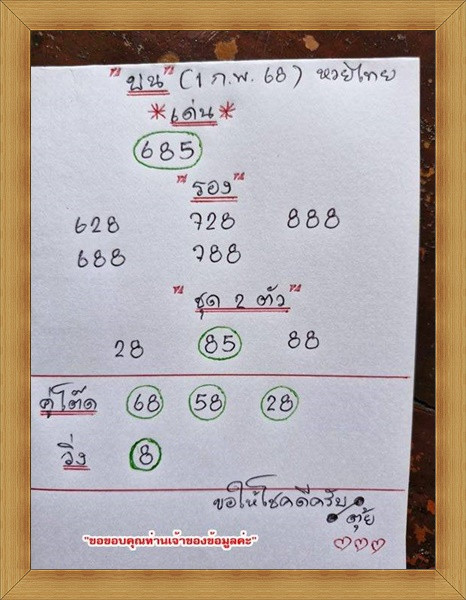 "บน" (1 ก.พ. 68) หวยไทย
*เด่น*
685
"รอง"
628 728 888
688 788
"ชุด 2 ตัว"
28 85 88
คู่โต๊ด 68 58 28
วิ่ง 8
ขอให้โชคดีครับ
ตุ้ย
"ขอขอบคุณท่านเจ้าของข้อมูลค่ะ"